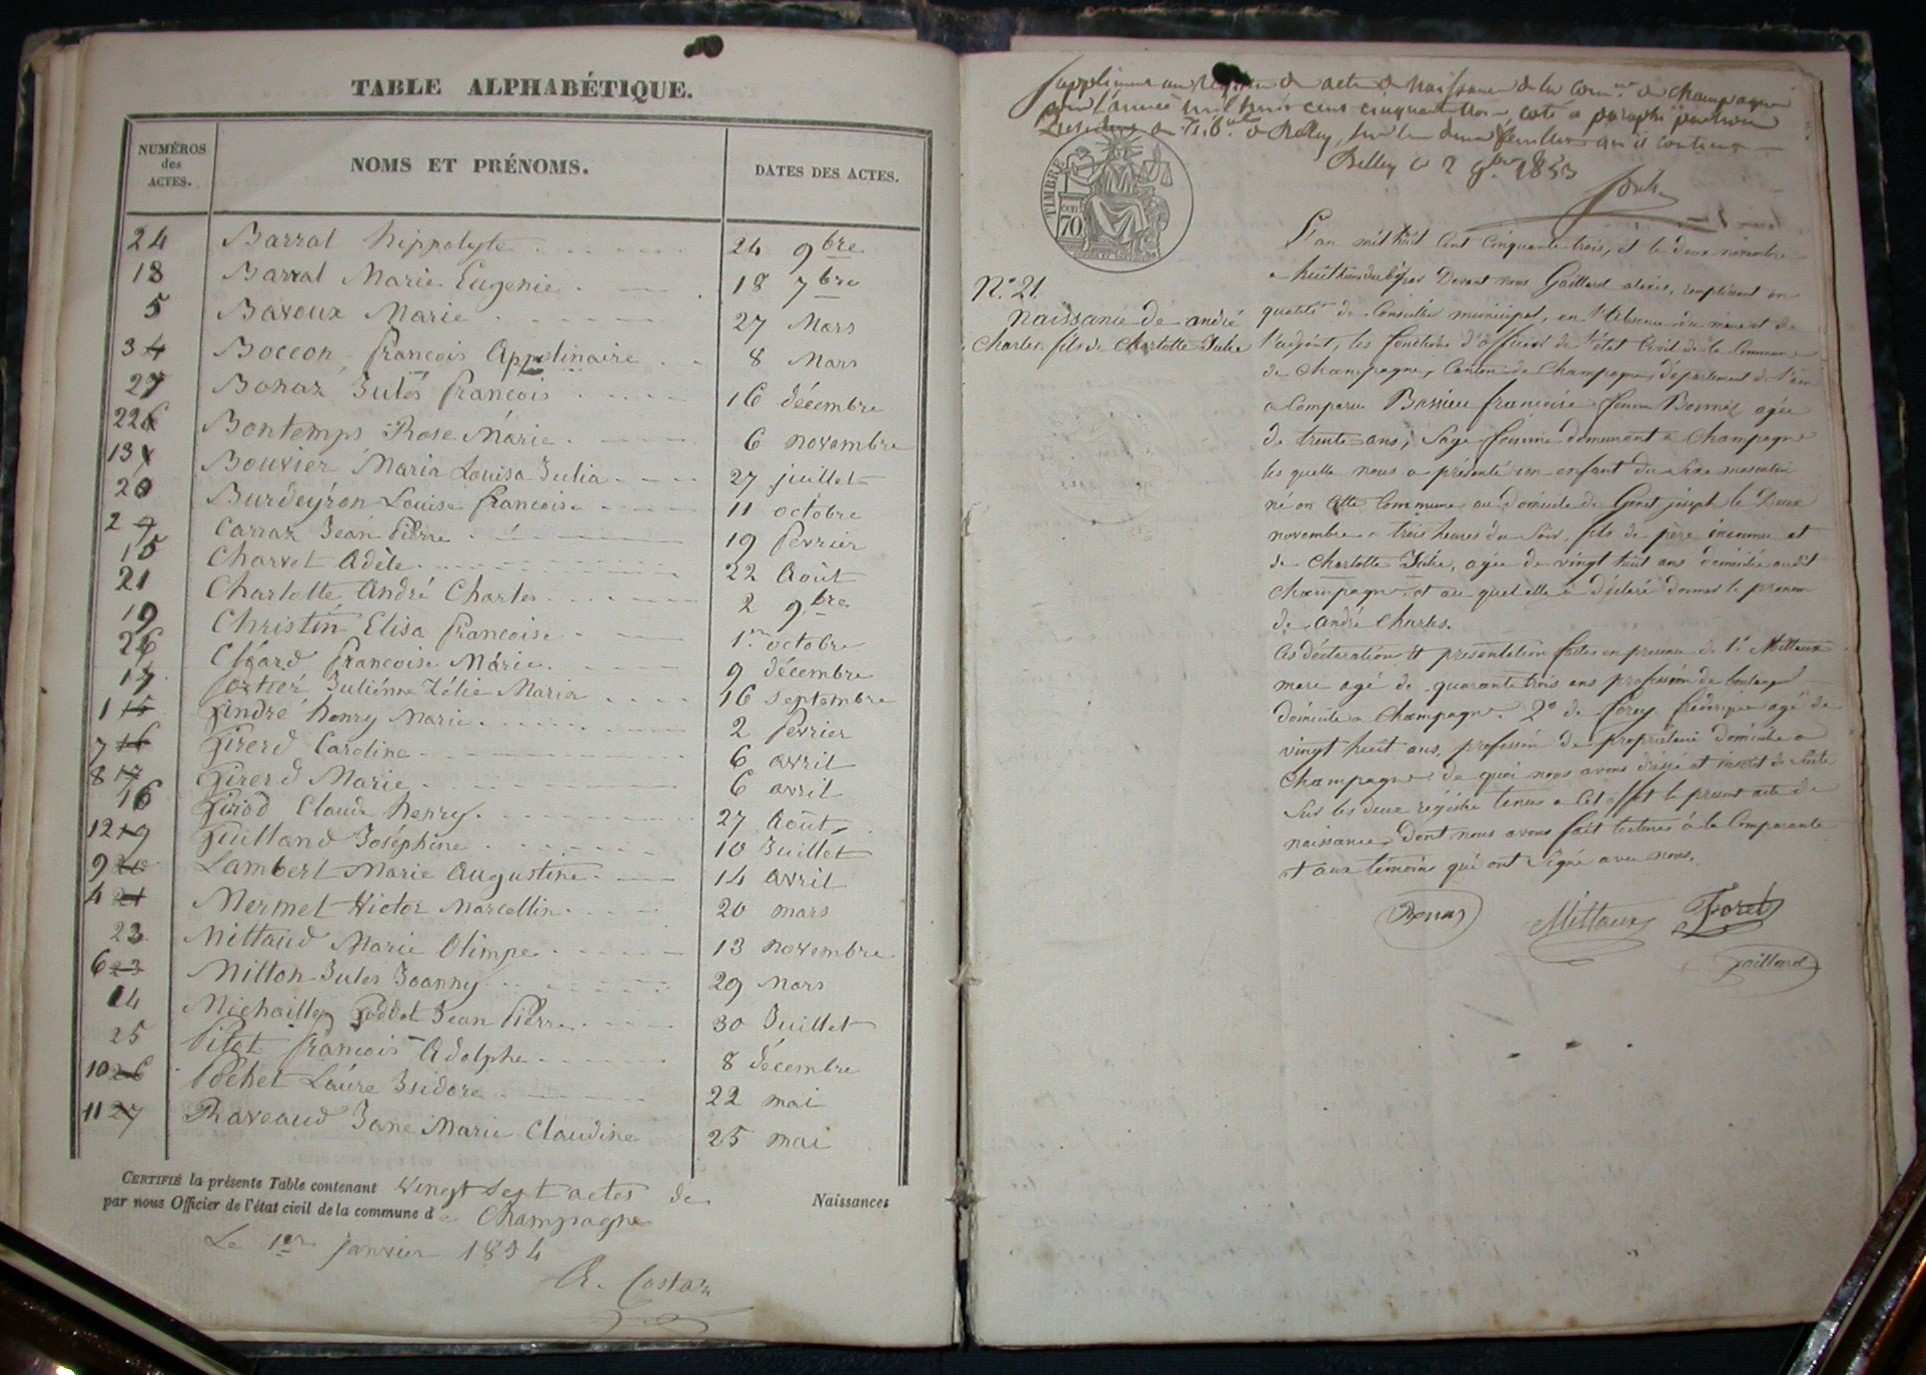 TABLE ALPHABÉTIQUE.
NUMÉROS des ACTES. NOMS ET PRÉNOMS. DATES DES ACTES.
24 Barral hippolyte 24 9bre
18 Barral Marie Eugenie 18 7bre
5 Bavoux Marie 27 Mars
3 4 Boccon francois Appolinaire 8 Mars
27 Bonaz Jules francois 16 décembre
22 6 Bontemps Rose Marie 6 novembre
13 Bouvier Maria Louisa Julia 27 juillet
20 Burdeyron Louise francoise 11 octobre
2 9 Carraz Jean Pierre 19 fevrier
15 Charvet Adèle 22 Août
21 Charlotte André Charles 2 9bre
19 Christin Elisa francoise 1er octobre
26 francoise Marie 9 décembre
17 Juliénne Zélie Maria 16 septembre
1 15 Gindre henry Marie 2 fevrier
7 16 Girerd Caroline 6 avril
8 17 Girerd Marie 6 avril
16 Girod Claude henry 27 Août
12 19 Guilland Joséphine 10 Juillet
9 20 Lambert Marie Augustine 14 avril
4 21 Mermet Victor Marcellin 20 mars
23 Mittaud Marie Olimpe 13 novembre
6 23 Milton Jules Joanny 29 Mars
14 Michaillet Jean Pierre 30 Juillet
25 Pitet francois Adolphe 8 décembre
10 26 Pochet Laure Isidore 22 mai
11 27 Raveaud Jane Marie Claudine 25 mai
CERTIFIÉ la présente Table contenant vingt sept actes de Naissances
par nous Officier de l'état civil de la commune de Champagne
Le 1er Janvier 1854
R. Costaz
Supplément au registre de actes de Naissance de la comne de Champagne
pour l'année mil huit cent cinquante trois coté et paraphé par nous
Président du Tribal de Belley, sur les deux feuilles qu'il contient
Belley le 2 9bre 1853
TIMBRE
70
L'an mil huit cent cinquante trois, et le deux novembre
à huit heures du soir Devant nous Gaillard alexis, remplissant en
N.° 21.
Naissance de andré
Charles fils de Charlotte Julie
qualité de Conseiller municipal, en l'absence du maire et de
l'adjoint, les fonctions d'officier de l'état Civil de la Commune
de Champagne, Canton de Champagne, département de l'ain
a Comparu Bassieu francoise femme Bonnaz agée
de trente ans, Sage femme demeurant à Champagne
les quelle nous a présenté un enfant du Sexe masculin
né en cette Commune au domicile de Genet joseph le Deux
novembre à trois heures du Soir, fils de père inconnu et
de Charlotte Julie, agée de vingt huit ans domiciliée audit
Champagne et au quel elle a déclaré donner le prenom
de André Charles.
Ces déclaration et présentation faites en présence de 1° Mittaux
marc agé de quarante trois ans profession de boulanger
domicile a Champagne. 2° de forey agé de
vingt huit ans, profession de propriétaire domicile a
Champagne de quoi nous avons dressé et inscrit de suite
Sur les deux registre tenus a Cet effet le present acte de
naissance, Dont nous avons fait lecture à la Comparante
et aux témoins qui ont signé avec nous.
Bonnaz Mittaux Foret
Gaillard